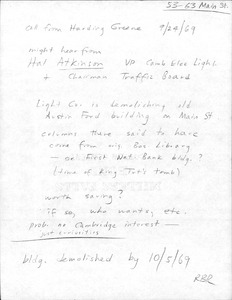 53-63 Main St.
call from Harding Greene 9/24/69
might hear from
Hal Atkinson VP Camb Elec Light
+ Chairman Traffic Board
Light Co. is demolishing old
Austin Ford building on Main St
columns there said to have
come from orig. Bos Library
— or First Nat. Bank bldg. ?
(time of King Tut's tomb)
worth saving?
if so, who wants, etc.
prob. no Cambridge interest —
just curiosities
bldg. demolished by 10/5/69
RBR